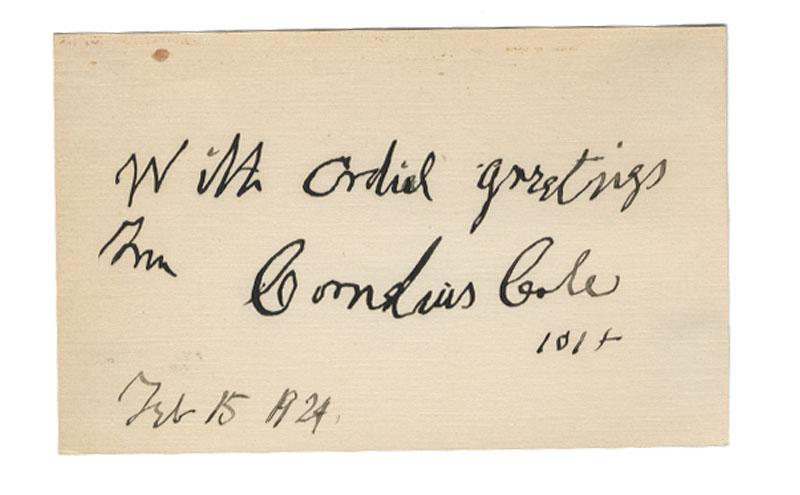 With cordial greetings
From
Cornelius Cole
101+
Feb 15 1924.